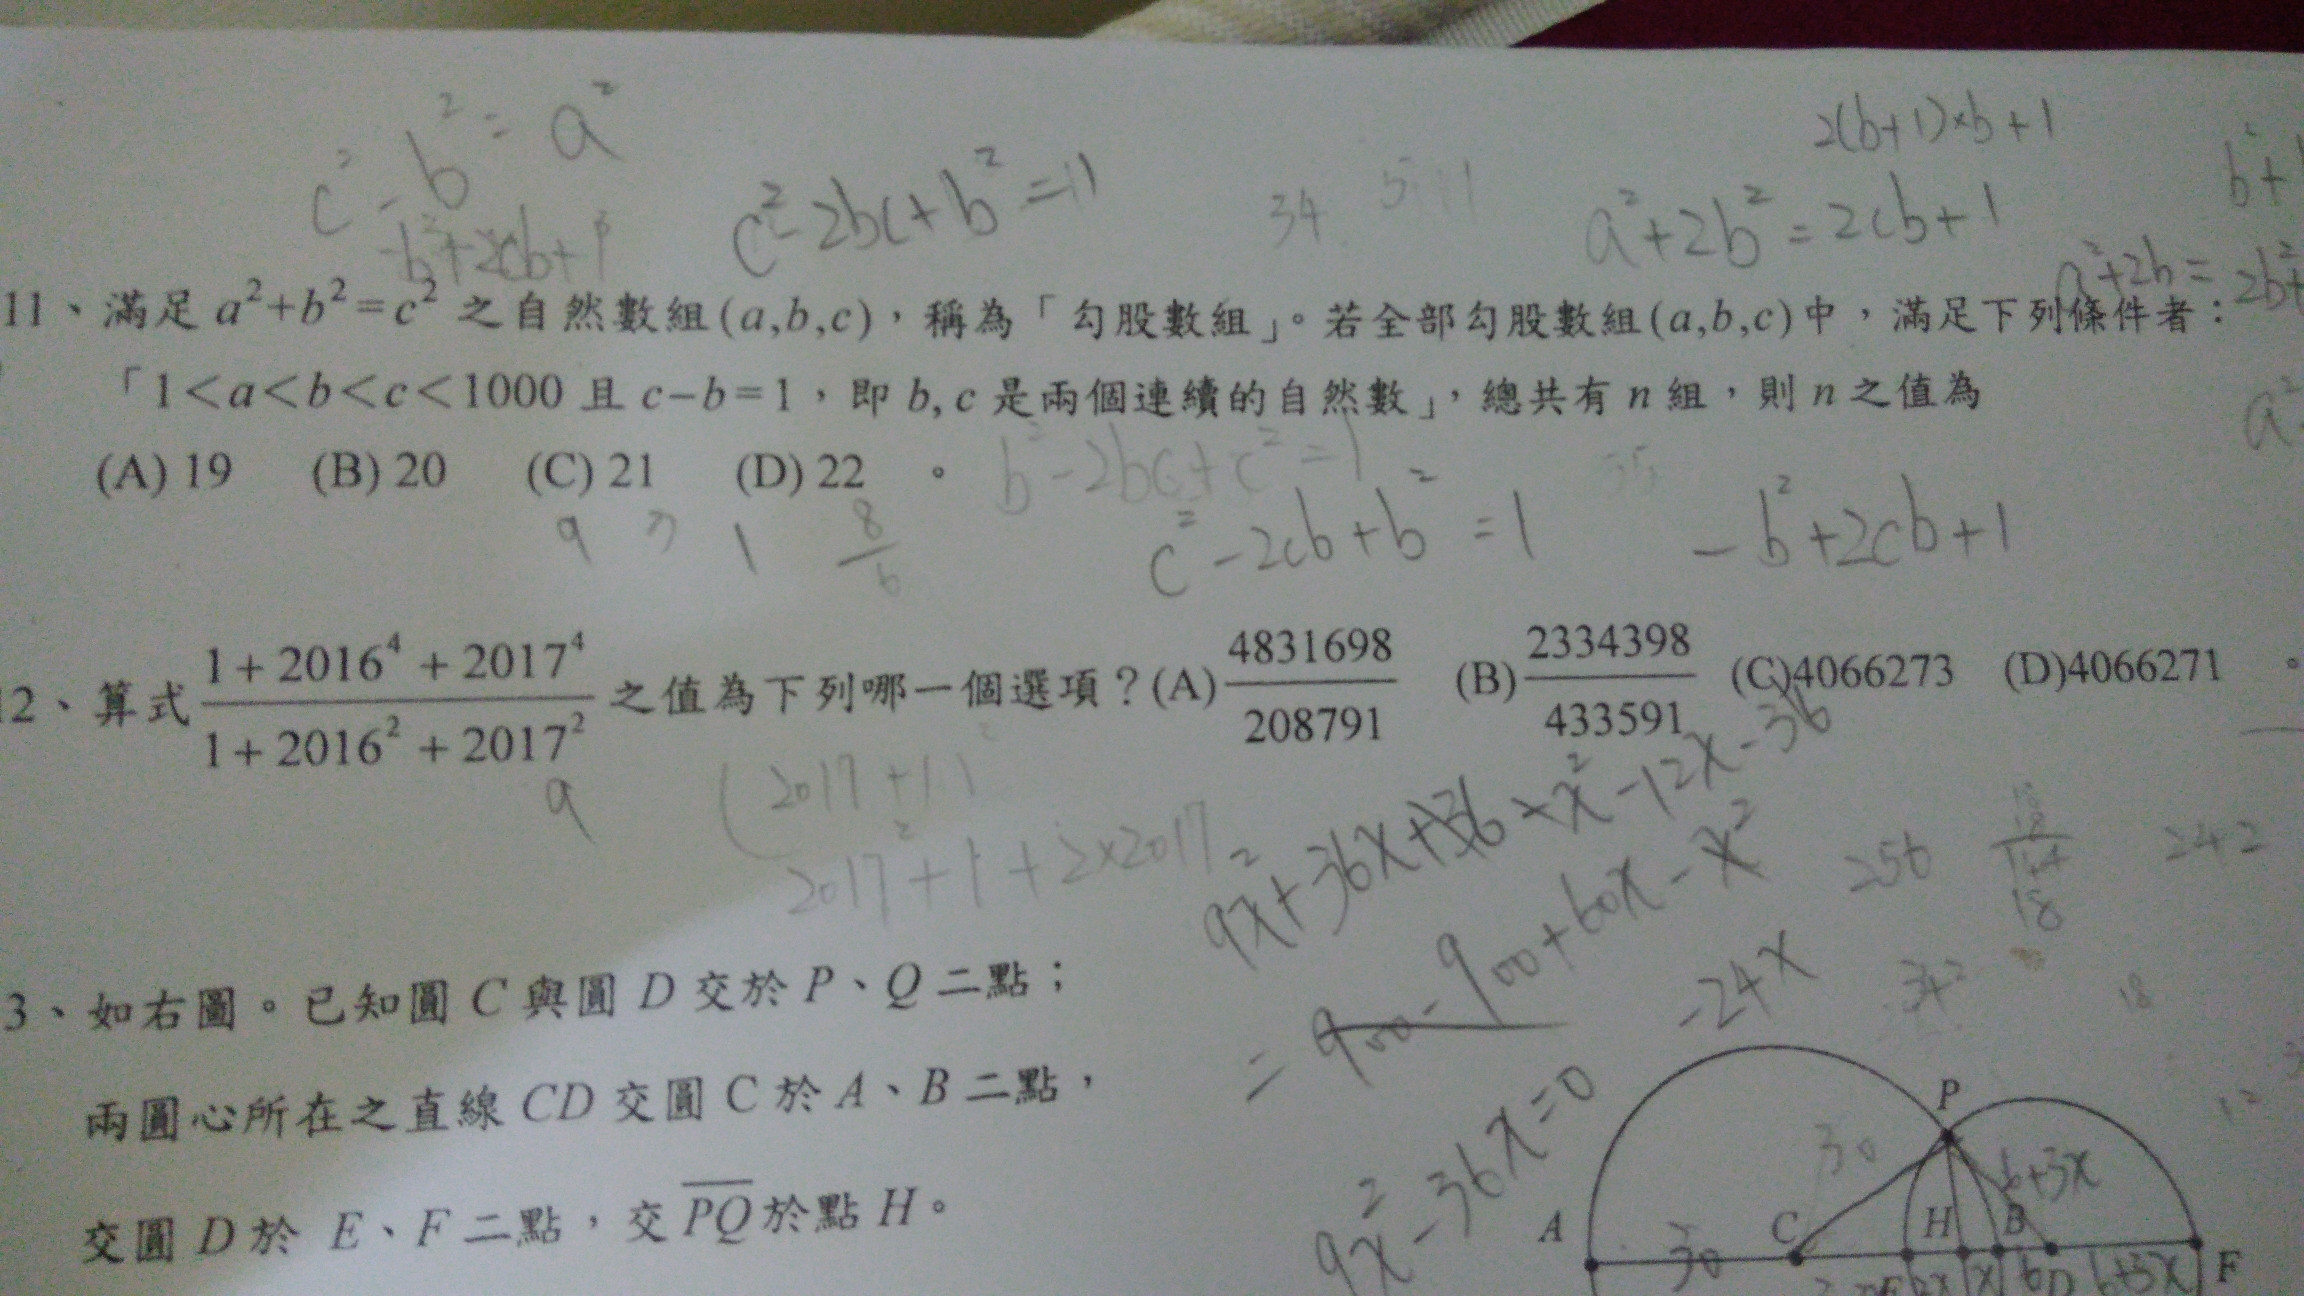 c² - b² = a²
-b²+2cb+1
c²-2bc+b²=1
34
2(b+1)×b+1
a²+2b²=2cb+1
a²+2b=2b²+
11、滿足 a²+b²=c² 之自然數組(a,b,c),稱為「勾股數組」。若全部勾股數組(a,b,c)中,滿足下列條件者:
「1<a<b<c<1000 且 c−b=1,即 b, c 是兩個連續的自然數」,總共有 n 組,則 n 之值為
(A) 19 (B) 20 (C) 21 (D) 22 。
b²-2bc+c²=1
c²-2cb+b²=1
-b²+2cb+1
9
1
8/6
12、算式 (1+2016⁴+2017⁴)/(1+2016²+2017²) 之值為下列哪一個選項?(A) 4831698/208791 (B) 2334398/433591 (C)4066273 (D)4066271 。
9
(2017+1)²
2017²+1+2×2017
9x²+36x+36-x²-12x-36
=900-900+60x-x²
-24x
256
18
242
34²
18
9x²-36x=0
3、如右圖。已知圓 C 與圓 D 交於 P、Q 二點;
兩圓心所在之直線 CD 交圓 C 於 A、B 二點,
交圓 D 於 E、F 二點,交 PQ 於點 H。
P
30
6+3x
A
C
H
B
30
E
2x
x
6
D
6+3x
F